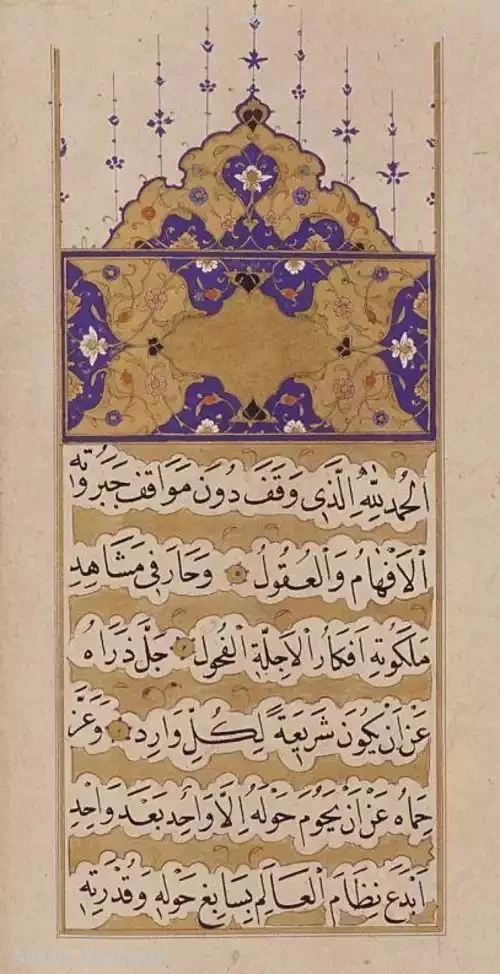 الْحَمْدُ لِلّٰهِ الَّذِى وَقَفَ دُونَ مَوَاقِفِ جَبَرُوتِهِ
الْاَفْهَامُ وَالْعُقُولُ وَحَارَ فِى مَشَاهِدِ
مَلَكُوتِهِ اَفْكَارُ الْاَجِلَّةِ الْفُحُولِ جَلَّ ذَرَاهُ
عَنْ اَنْ يَكُونَ شَرِيعَةً لِكُلِّ وَارِدٍ وَعَزَّ
حِمَاهُ عَنْ اَنْ يَحُومَ حَوْلَهُ اِلَّا وَاحِدٌ بَعْدَ وَاحِدٍ
اَبْدَعَ نِظَامَ الْعَالَمِ بِسَابِغِ حَوْلِهِ وَقُدْرَتِهِ